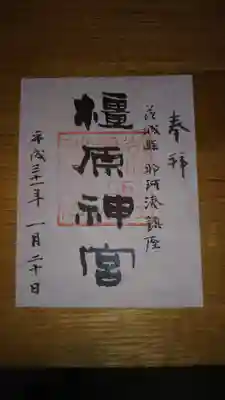 奉拝
茨城縣 那珂湊鎮座
橿原神宮
平成三十一年 一月二十日